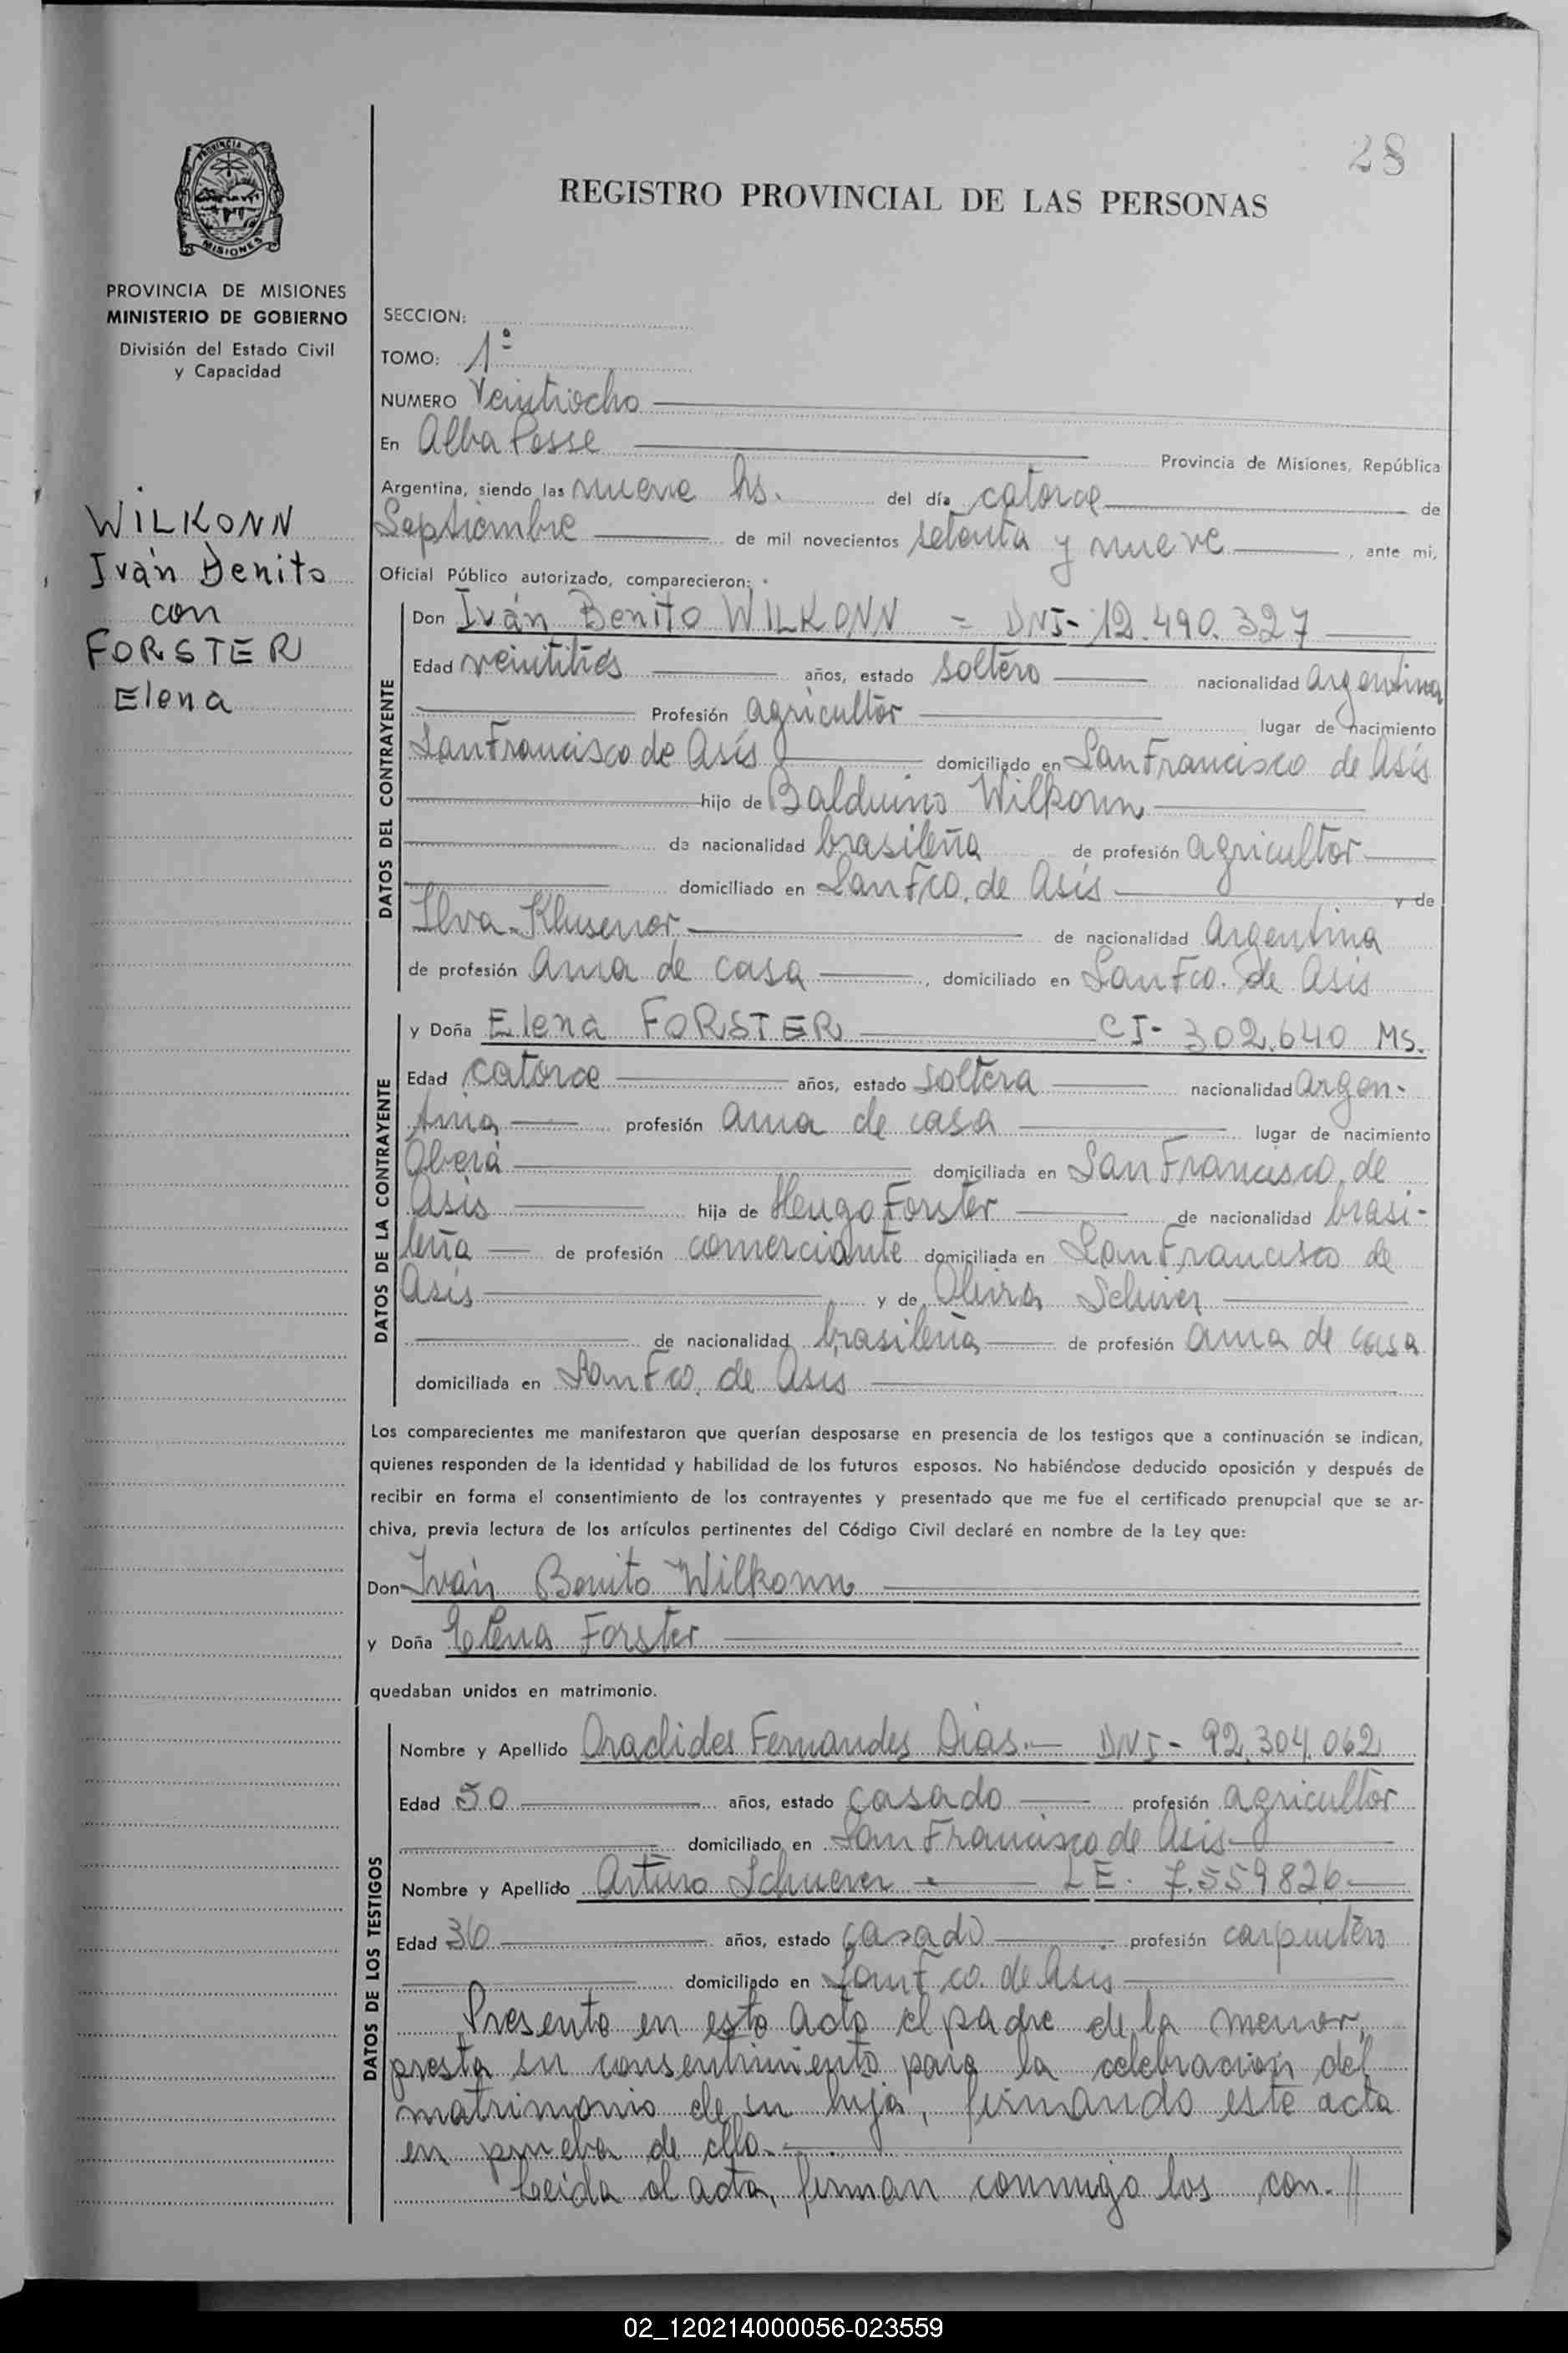 28
PROVINCIA DE MISIONES
REGISTRO PROVINCIAL DE LAS PERSONAS
PROVINCIA DE MISIONES
MINISTERIO DE GOBIERNO
División del Estado Civil
y Capacidad
WILKONN
Iván Benito
con
FORSTER
Elena
SECCION:
TOMO: 1º
NUMERO Veintiocho
En Alba Posse Provincia de Misiones, República
Argentina, siendo las nueve hs. del día catorce de
Septiembre de mil novecientos setenta y nueve, ante mi,
Oficial Público autorizado, comparecieron:
DATOS DEL CONTRAYENTE
Don Iván Benito WILKONN = DNI- 12.490.327
Edad veintitrés años, estado soltero nacionalidad argentina
Profesión agricultor lugar de nacimiento
San Francisco de Asís domiciliado en San Francisco de Asís
hijo de Balduino Wilkonn
de nacionalidad brasileña de profesión agricultor
domiciliado en San Fco. de Asís y de
Ilva Klusener de nacionalidad Argentina
de profesión ama de casa, domiciliado en San Fco. de Asis
DATOS DE LA CONTRAYENTE
y Doña Elena FORSTER CI- 302.640 Ms.
Edad catorce años, estado soltera nacionalidad argen-
tina profesión ama de casa lugar de nacimiento
Oberá domiciliada en San Francisco de
Asis hija de Hugo Forster de nacionalidad brasi-
leña de profesión comerciante domiciliada en San Francisco de
Asís y de
de nacionalidad brasileña de profesión ama de casa
domiciliada en San Fco. de Asis
Los comparecientes me manifestaron que querían desposarse en presencia de los testigos que a continuación se indican,
quienes responden de la identidad y habilidad de los futuros esposos. No habiéndose deducido oposición y después de
recibir en forma el consentimiento de los contrayentes y presentado que me fue el certificado prenupcial que se ar-
chiva, previa lectura de los artículos pertinentes del Código Civil declaré en nombre de la Ley que:
Don Iván Benito Wilkonn
y Doña Elena Forster
quedaban unidos en matrimonio.
DATOS DE LOS TESTIGOS
Nombre y Apellido Oraclides Fernandes Dias.- DNI- 92.304.062
Edad 50 años, estado casado profesión agricultor
domiciliado en San Francisco de Asis
Nombre y Apellido Arturo Schuerer LE. 7.559826
Edad 36 años, estado casado profesión carpintero
domiciliado en San Fco. de Asis
Presente en este acto el padre de la menor,
presta su consentimiento para la celebracion del
matrimonio de su hija, firmando este acta
en prueba de ello.-
Leida el acta, firman conmigo los con-//
02_120214000056-023559